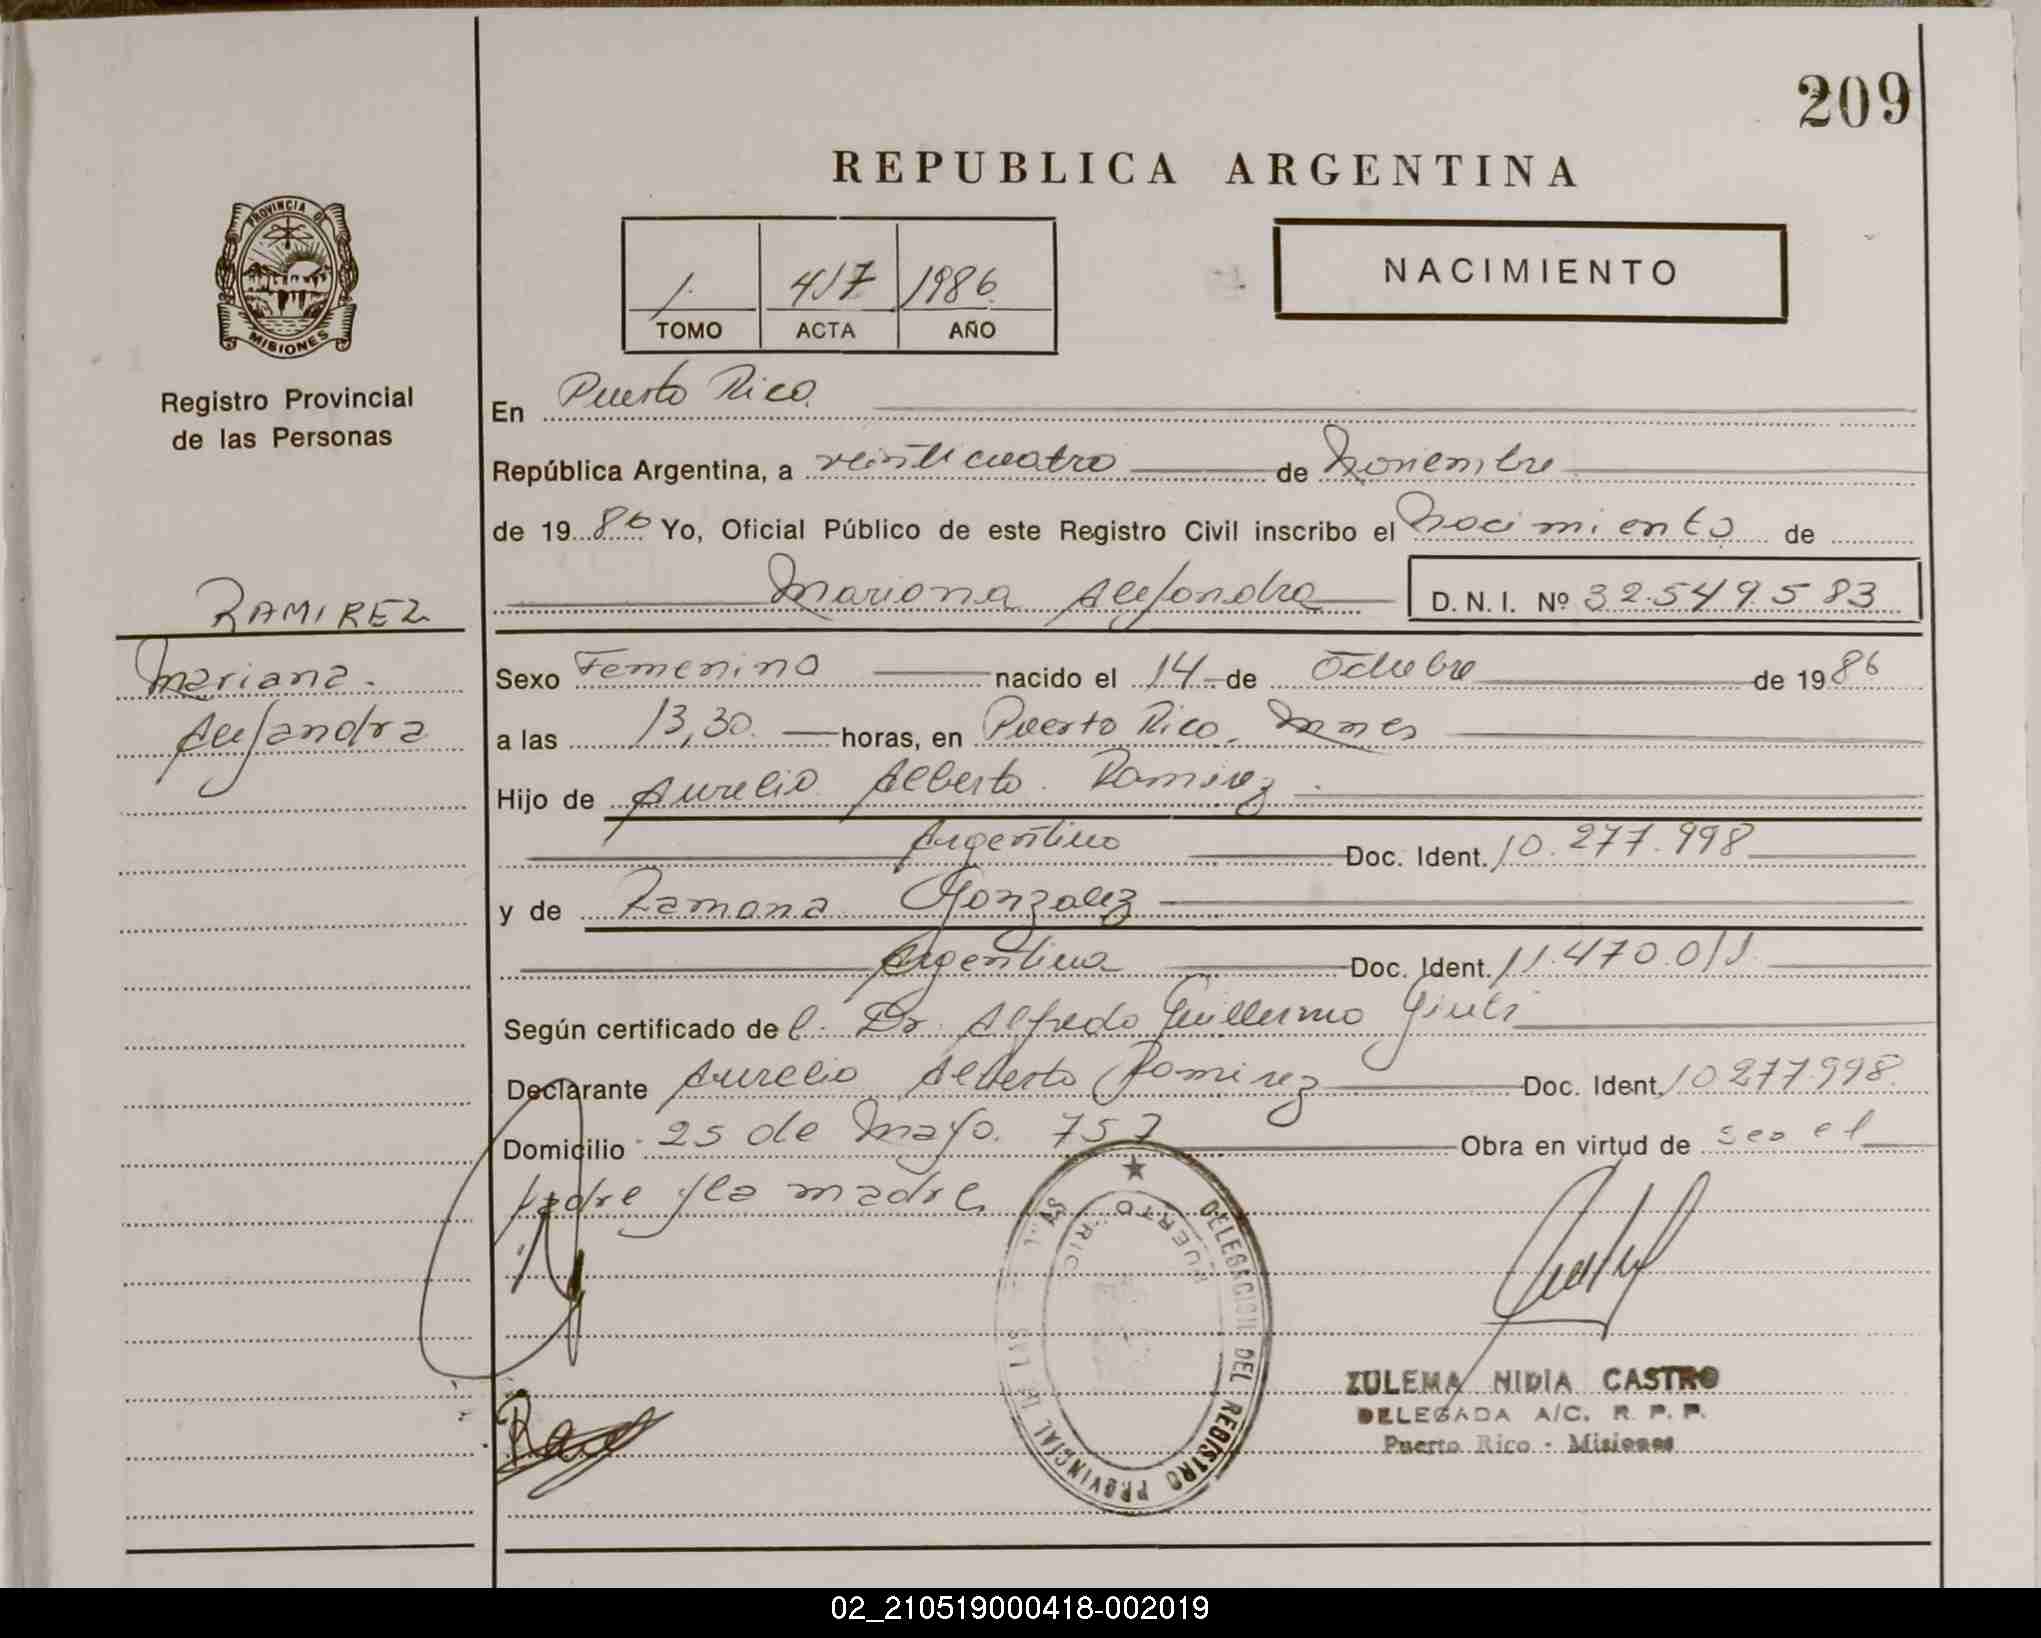 209
REPUBLICA ARGENTINA
PROVINCIA DE
MISIONES
Registro Provincial
de las Personas
1. 417 1986
TOMO ACTA AÑO
NACIMIENTO
En Puerto Rico
República Argentina, a veinticuatro de Noviembre
de 1986 Yo, Oficial Público de este Registro Civil inscribo el Nacimiento de
Mariana Alejandra D.N.I. Nº 32.549.583
RAMIREZ
Mariana
Alejandra
Sexo Femenino nacido el 14 de Octubre de 1986
a las 13,30 horas, en Puerto Rico. Mnes
Hijo de Aurelio Alberto Ramirez
Argentino Doc. Ident. 10.277.998
y de Ramona Gonzalez
Argentina Doc. Ident. 11.470.011
Según certificado del Dr. Alfredo Guillermo
Declarante Aurelio Alberto Ramirez Doc. Ident. 10.277.998
Domicilio 25 de Mayo 757 Obra en virtud de ser el
padre y la madre
DELEGACION DEL REGISTRO PROVINCIAL DE LAS
PUERTO RICO
ZULEMA NIDIA CASTRO
DELEGADA A/C. R. P. P.
Puerto Rico - Misiones
02_210519000418-002019